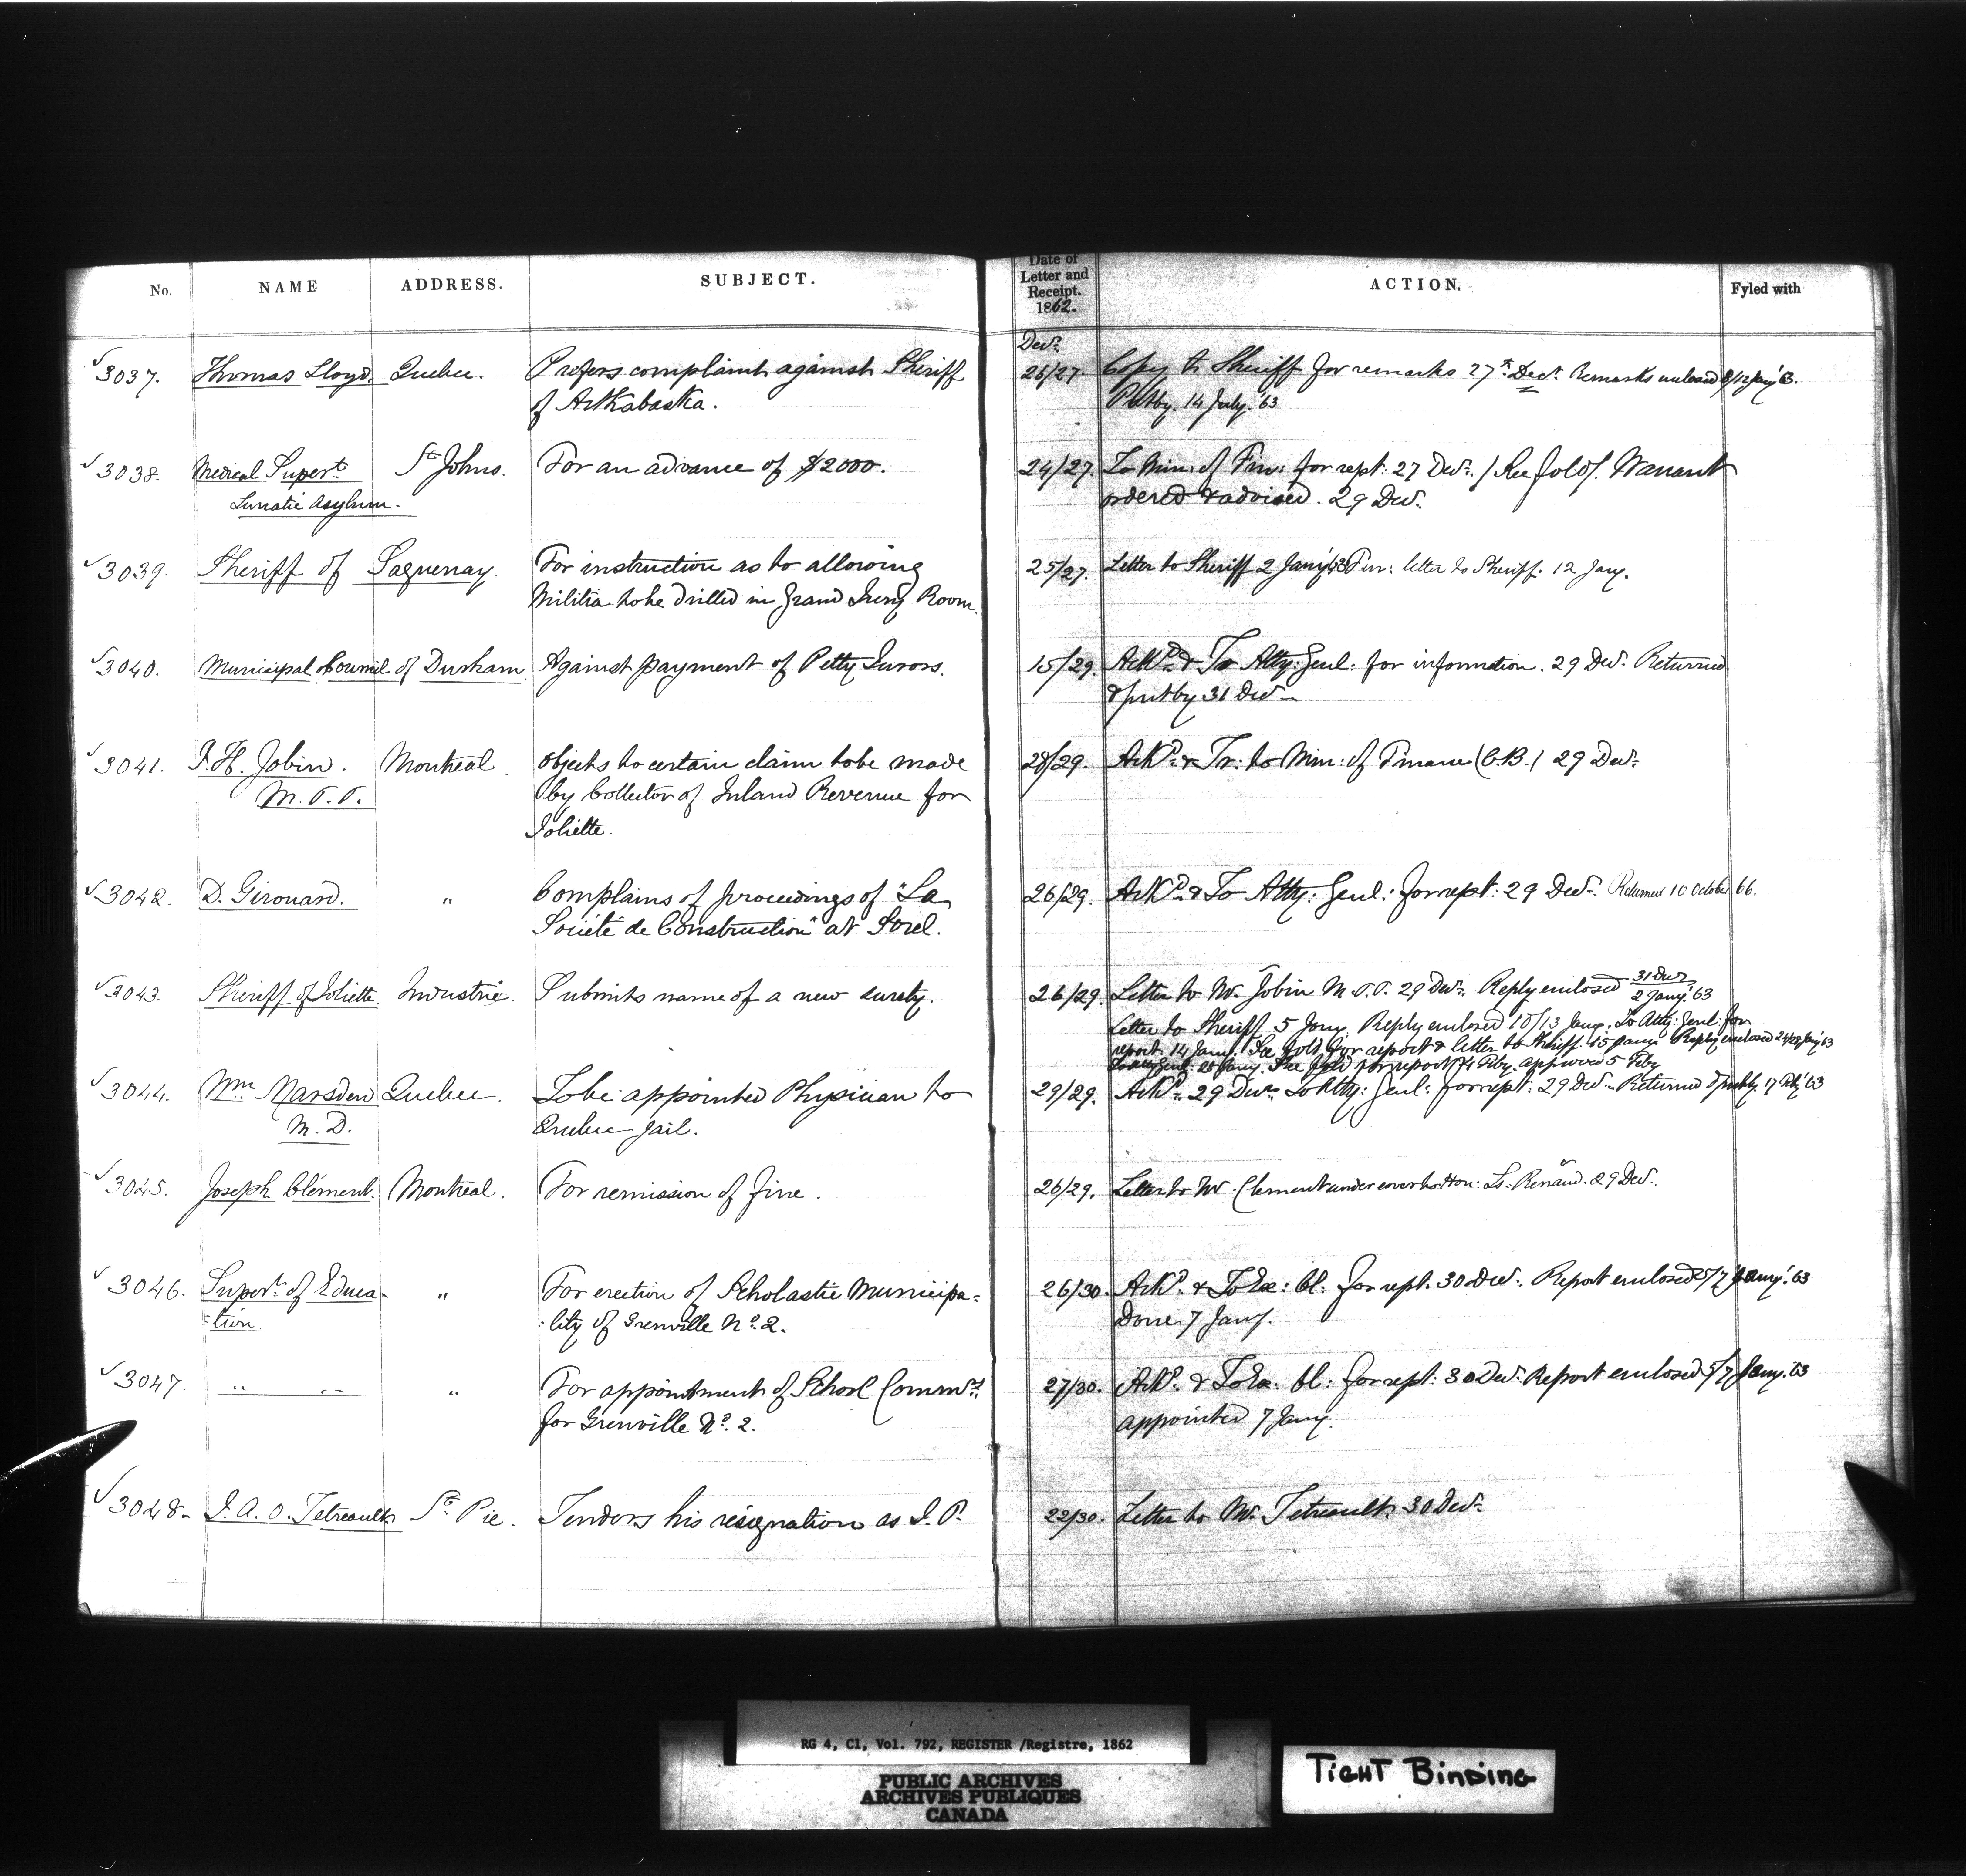 No. NAME ADDRESS. SUBJECT. Date of Letter and Receipt. 1862. ACTION. Fyled with
Decr.
√3037. Thomas Lloyd. Quebec. Prefers complaint against Sheriff 26/27. Copy to Sheriff for remarks 27th Decr. Remarks enclosed 8/12 Jany '63.
of Arthabaska. Putby. 14 July. '63
√3038. Medical Supert. St Johns. For an advance of $2000. 24/27. To Min: of Fin: for rept: 27 Decr. / See fold /. Warrant
Lunatic Asylum. ordered & advised. 29 Decr.
√3039. Sheriff of Saguenay. For instruction as to allowing 25/27. Letter to Sheriff 2 Jany '63 Fur: letter to Sheriff. 12 Jany.
Militia to be drilled in Grand Jury Room.
√3040. Municipal Council of Durham. Against payment of Petty Jurors. 15/29. Ackd. & To Atty: Genl: for information. 29 Decr. Returned
& putby 31 Decr.
√3041. J. H. Jobin. Montreal. Objects to certain claim to be made 28/29. Ackd. & Tr: to Min: of Finance (C.B.) 29 Decr.
M.P.P. by Collector of Inland Revenue for
Joliette.
√3042. D. Girouard. " Complains of proceedings of "La 26/29. Ackd. & To Atty: Genl: for rept: 29 Decr. Returned 10 October 66.
Société de Construction" at Sorel.
√3043. Sheriff of Joliette Industrie. Submits name of a new surety. 26/29. Letter to Mr. Jobin M.P.P. 29 Decr. Reply enclosed 31 Decr/2 Jany. '63
Letter to Sheriff 5 Jany. Reply enclosed 10/13 Jany. To Atty: Genl: for
report. 14 Jany. See fold for report & letter to Sheriff. 15 Jany. Reply enclosed 24/28 Jany '63
To Atty Genl: 28 Jany. See fold for report 4 Feby. approved 5 Feby
√3044. Wm Marsden Quebec. To be appointed Physician to 29/29. Ackd. 29 Decr. To Atty: Genl: for rept: 29 Decr. Returned & putby. 17 Feby '63
M.D. Quebec Jail.
√3045. Joseph Clément. Montreal. For remission of fine. 26/29. Letter to Mr Clement under cover to Hon: Ls. Renaud. 29 Decr.
√3046. Supert. of Educa- " For erection of Scholastic Municipa= 26/30. Ackd. & To Ex: Cl: for rept. 30 Decr. Report enclosed 5/7 Jany. '63
:tion. :lity of Grenville No. 2. Done. 7 Jany.
√3047. " " " For appointment of School Commrs. 27/30. Ackd. & To Ex: Cl: for rept: 30 Decr. Report enclosed 5/7 Jany. '63
for Grenville No. 2. appointed 7 Jany.
√3048. J. A. O. Tetreault St Pie. Tenders his resignation as J. P. 22/30. Letter to Mr. Tetreault. 30 Decr.
RG 4, C1, Vol. 792, REGISTER /Registre, 1862
PUBLIC ARCHIVES
ARCHIVES PUBLIQUES
CANADA
TIGHT BINDING